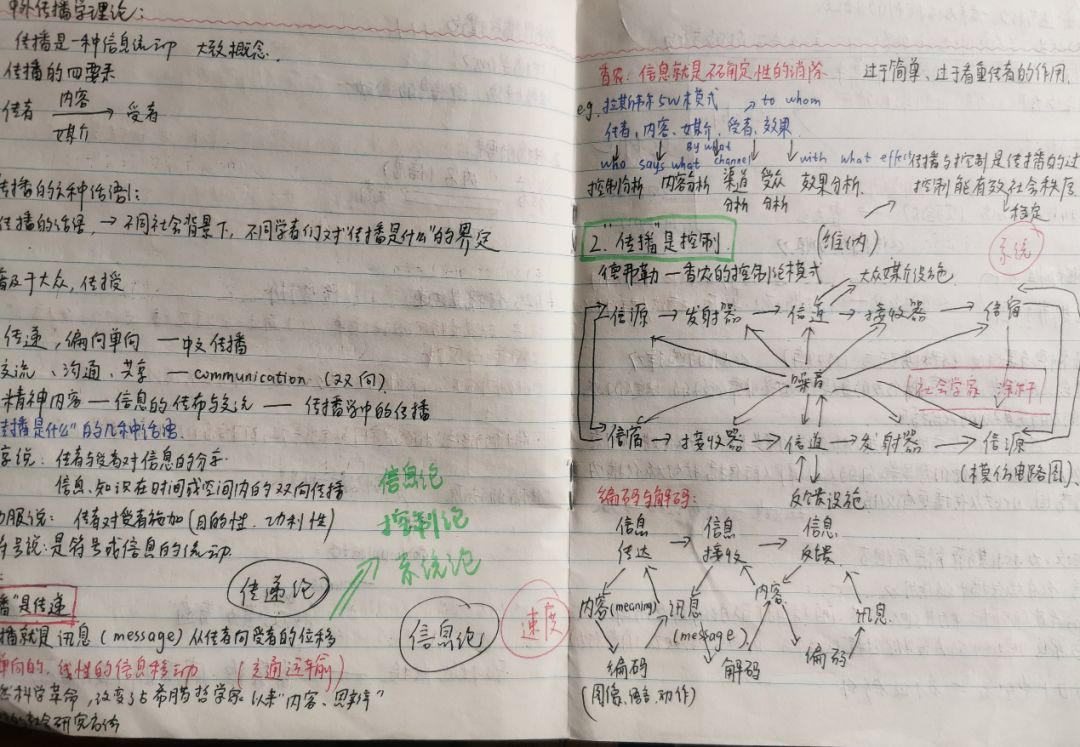 中外传播学理论:
传播是一种信息流动 大致概念.
传播的四要素
传者 内容 媒介 受者
传播的六种话语1:
传播的话语,→不同社会背景下,不同学者们对"传播是什么"的界定
普及于大众,传授
传递,偏向单向 一中文传播
交流、沟通、共享 — communication (双向)
精神内容 — 信息的传布与交流 — 传播学中的传播
传播是什么"的几种话语.
享说: 传者与受者对信息的分享.
信息.知识在时间或空间内的双向传播
服说: 传者对受者施加(目的性.功利性)
符号说: 是符号或信息的流动
信息论
控制论
系统论
传递论
信息论
速度
播"是传递
播就是讯息(message)从传者向受者的位移
单向的、线性的信息移动 (交通运输)
然科学革命,改变了古希腊哲学家以来"内容、
社会研究方法
香农: 信息就是不确定性的消除 过于简单、过于看重传者的作用.
e.g. 拉斯韦尔5W模式 → to whom
传者、内容、媒介、受者、效果.
By what
who says what channel with what effect
控制分析 内容分析 渠道分析 受众分析 效果分析.
传播与控制是传播的过
控制能有效社会秩序
稳定
2."传播"是控制. (维纳)
系统
德弗勒—香农的控制论模式 大众媒介设施
信源→发射器→信道→接收器→信宿
噪音
社会学家 涂尔干
信宿→接收器→信道→发射器→信源
(模仿电路图)、
编码与解码: 反馈设施
信息 信息 信息
传达 → 接收 → 反馈
内容(meaning) 讯息 内容 讯息
(message)
编码 解码 编码
(图像、语言.动作)